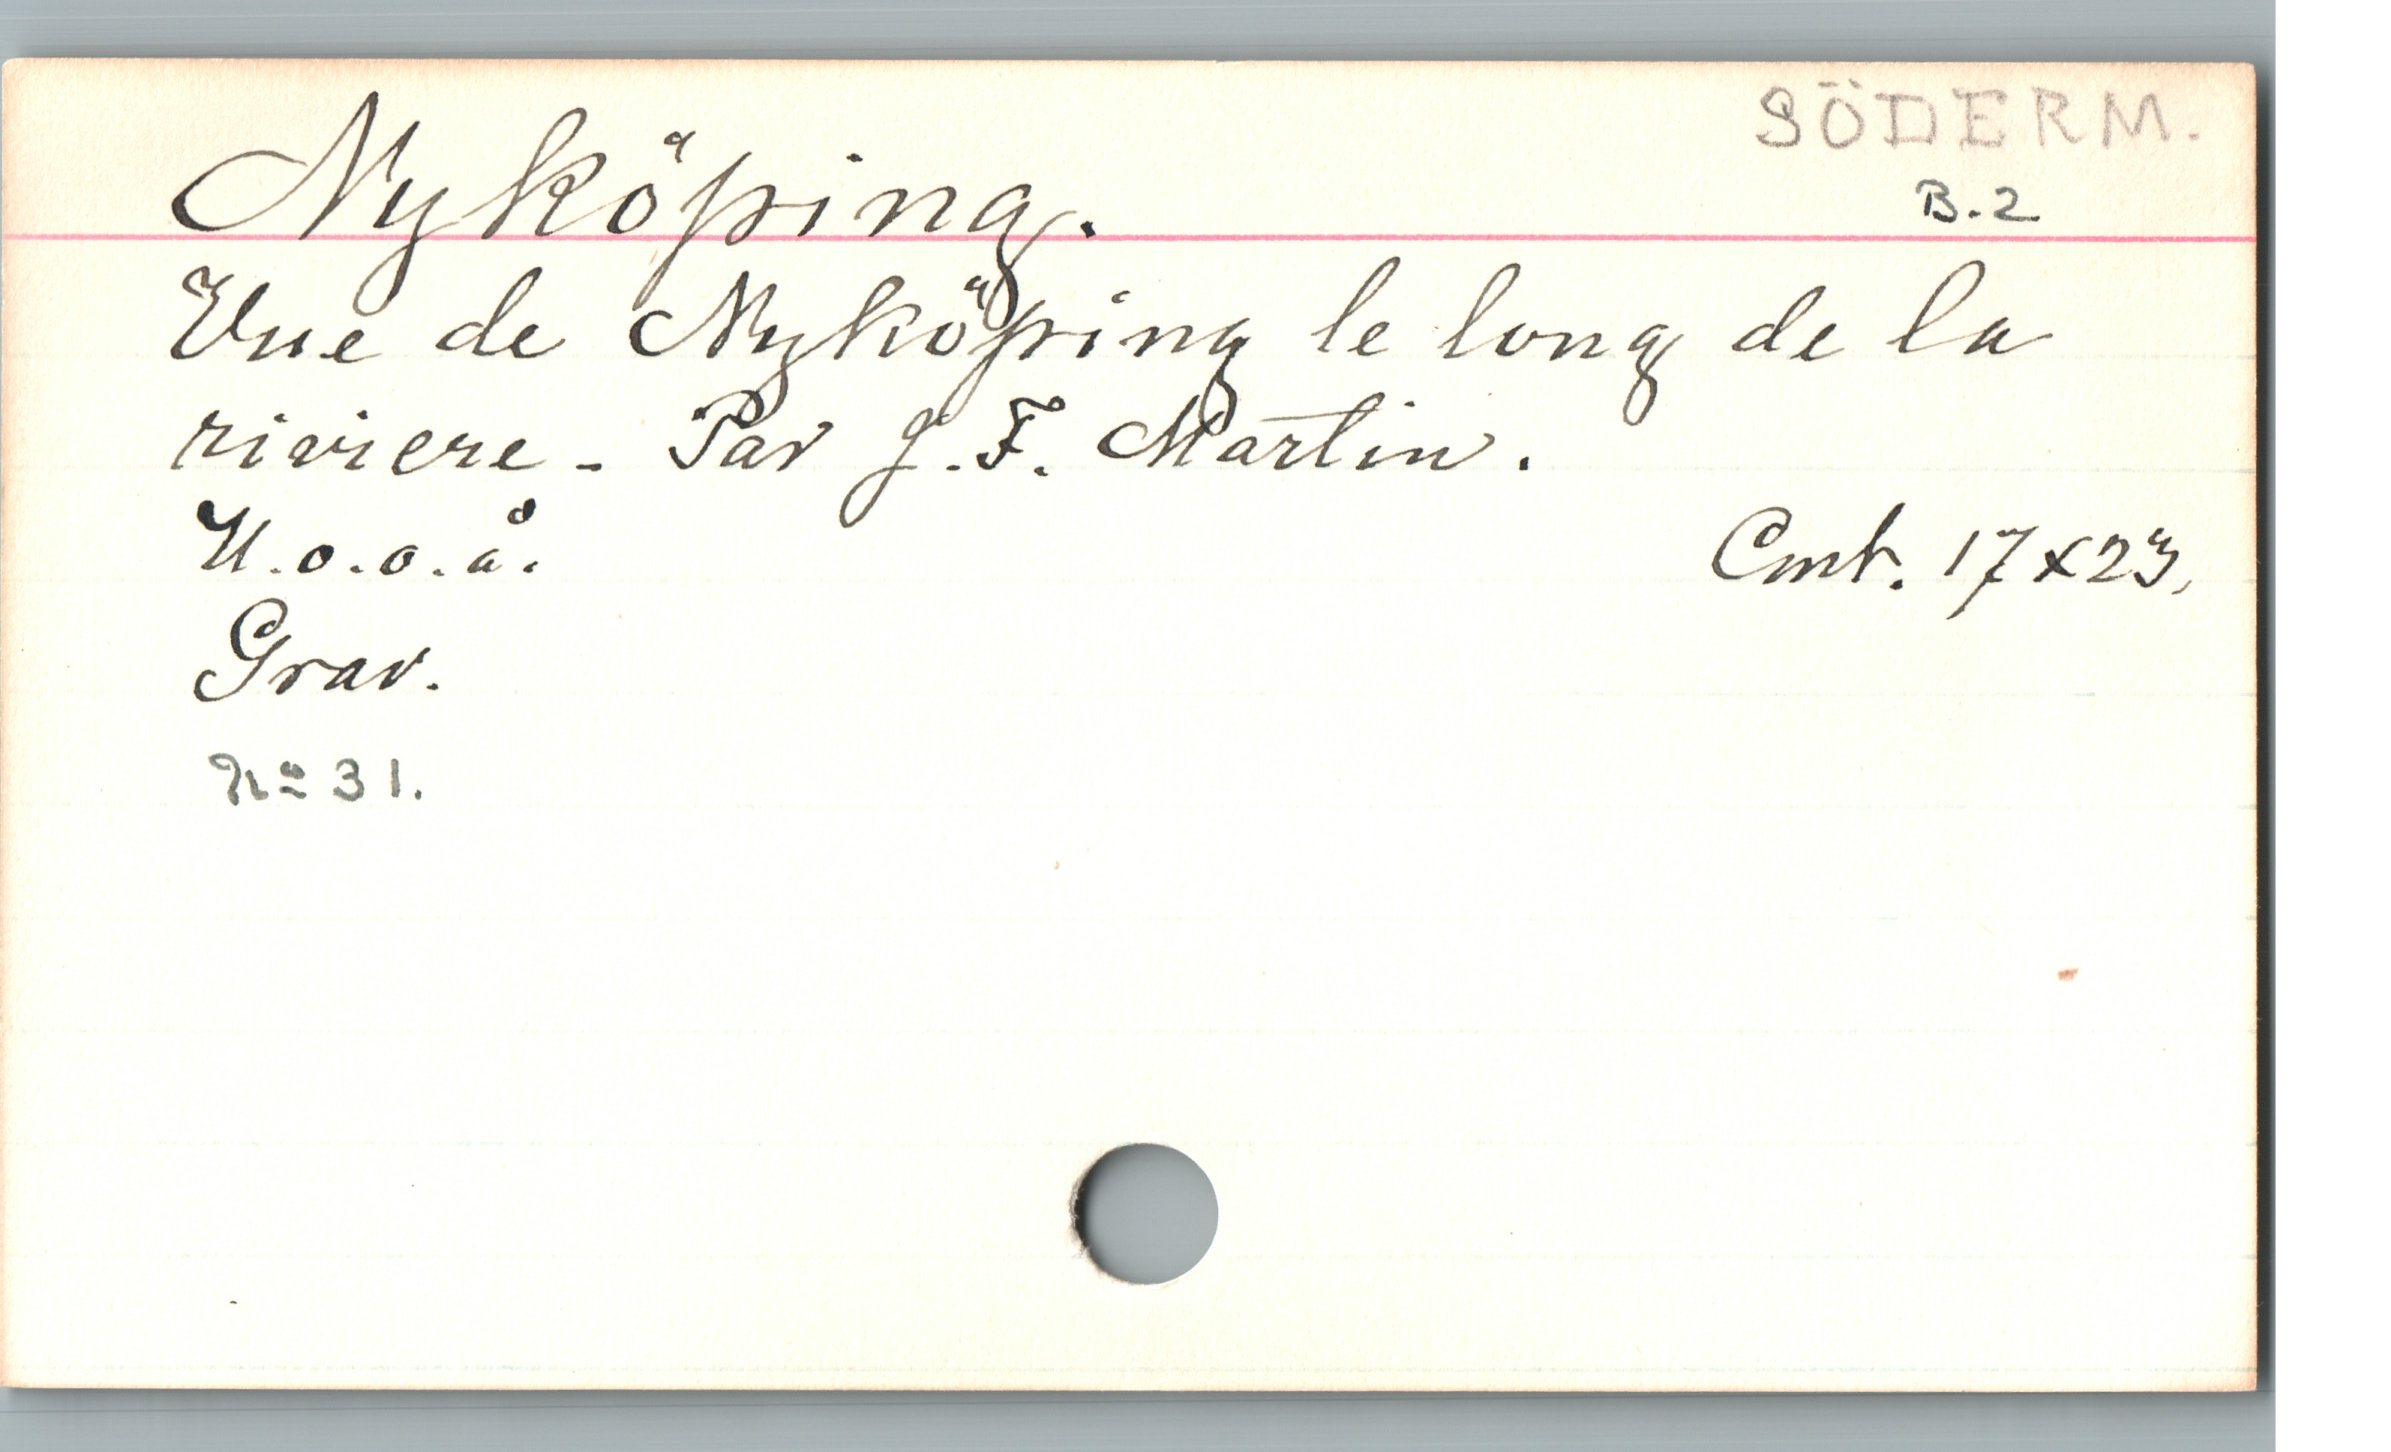 SÖDERM.
Nyköping.
B.2
Vue de Nyköping le long de la
riviere - Par J. F. Martin.
U.o.o.å.
Cmt. 17x23,
Grav.
No 31.